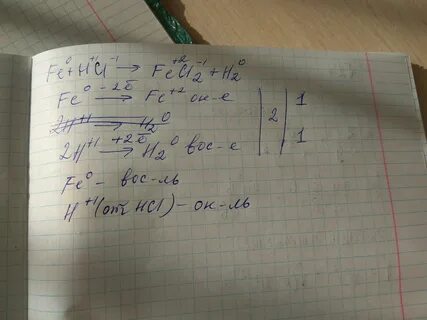 Fe⁰ + H⁺¹Cl⁻¹ → Fe⁺²Cl₂⁻¹ + H₂⁰
Fe⁰ –2e̅ → Fe⁺² ок-е | 2 | 1
2H⁺¹ → H₂⁰
2H⁺¹ +2e̅ → H₂⁰ вос-е | 1
Fe⁰ – вос-ль
H⁺¹ (от HCl) – ок-ль